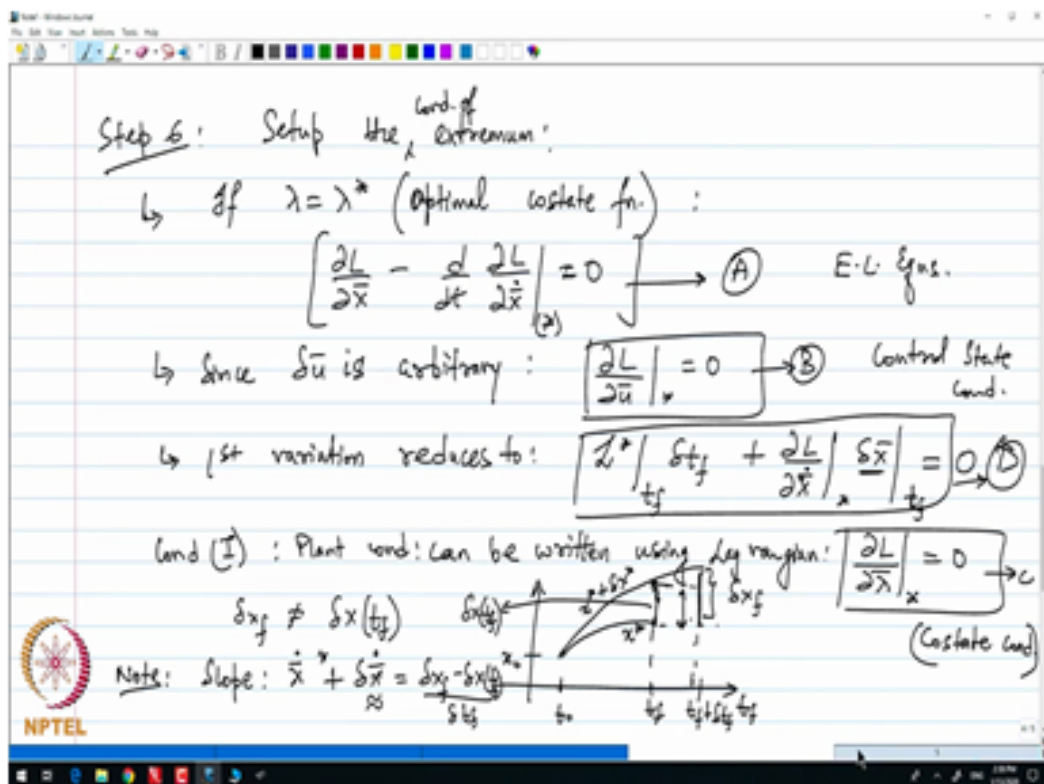 File Edit View Insert Actions Tools Help
B I
Step 6 : Setup the cond. of extremum :
↳ If λ = λ* (Optimal costate fn.) :
[∂L/∂x̄ - d/dt ∂L/∂ẋ̄ |(*) = 0] → Ⓐ E.L. Eqns.
↳ Since δū is arbitrary : ∂L/∂ū |* = 0 → Ⓑ Control State Cond.
↳ 1st variation reduces to : L*|tf δtf + ∂L/∂ẋ̄ |* δx̄ |tf = 0 → Ⓓ
Cond (I) : Plant cond : can be written using Lagrangian : ∂L/∂λ̄ |* = 0 → C
(Costate cond)
δxf ≠ δx(tf)
δx(tf) x*+δx* x* δxf
x0
Note : Slope : ẋ* + δẋ̄ = δxf - δx(tf) / δtf
t0 tf tf+δtf tf
NPTEL